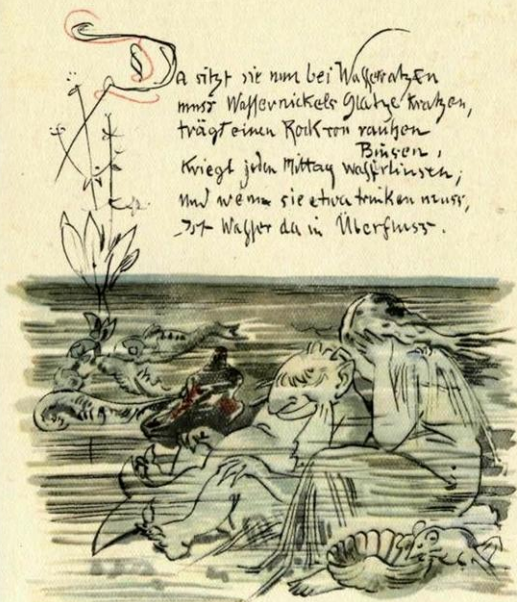 Da sitzt sie nun bei Wasserratzen
muss Wassernickels Glatze kratzen,
trägt einen Rock von rauhen
Binsen,
kriegt jeden Mittag Wasserlinsen;
und wenn sie etwa trinken muss,
Ist Wasser da in Überfluss.